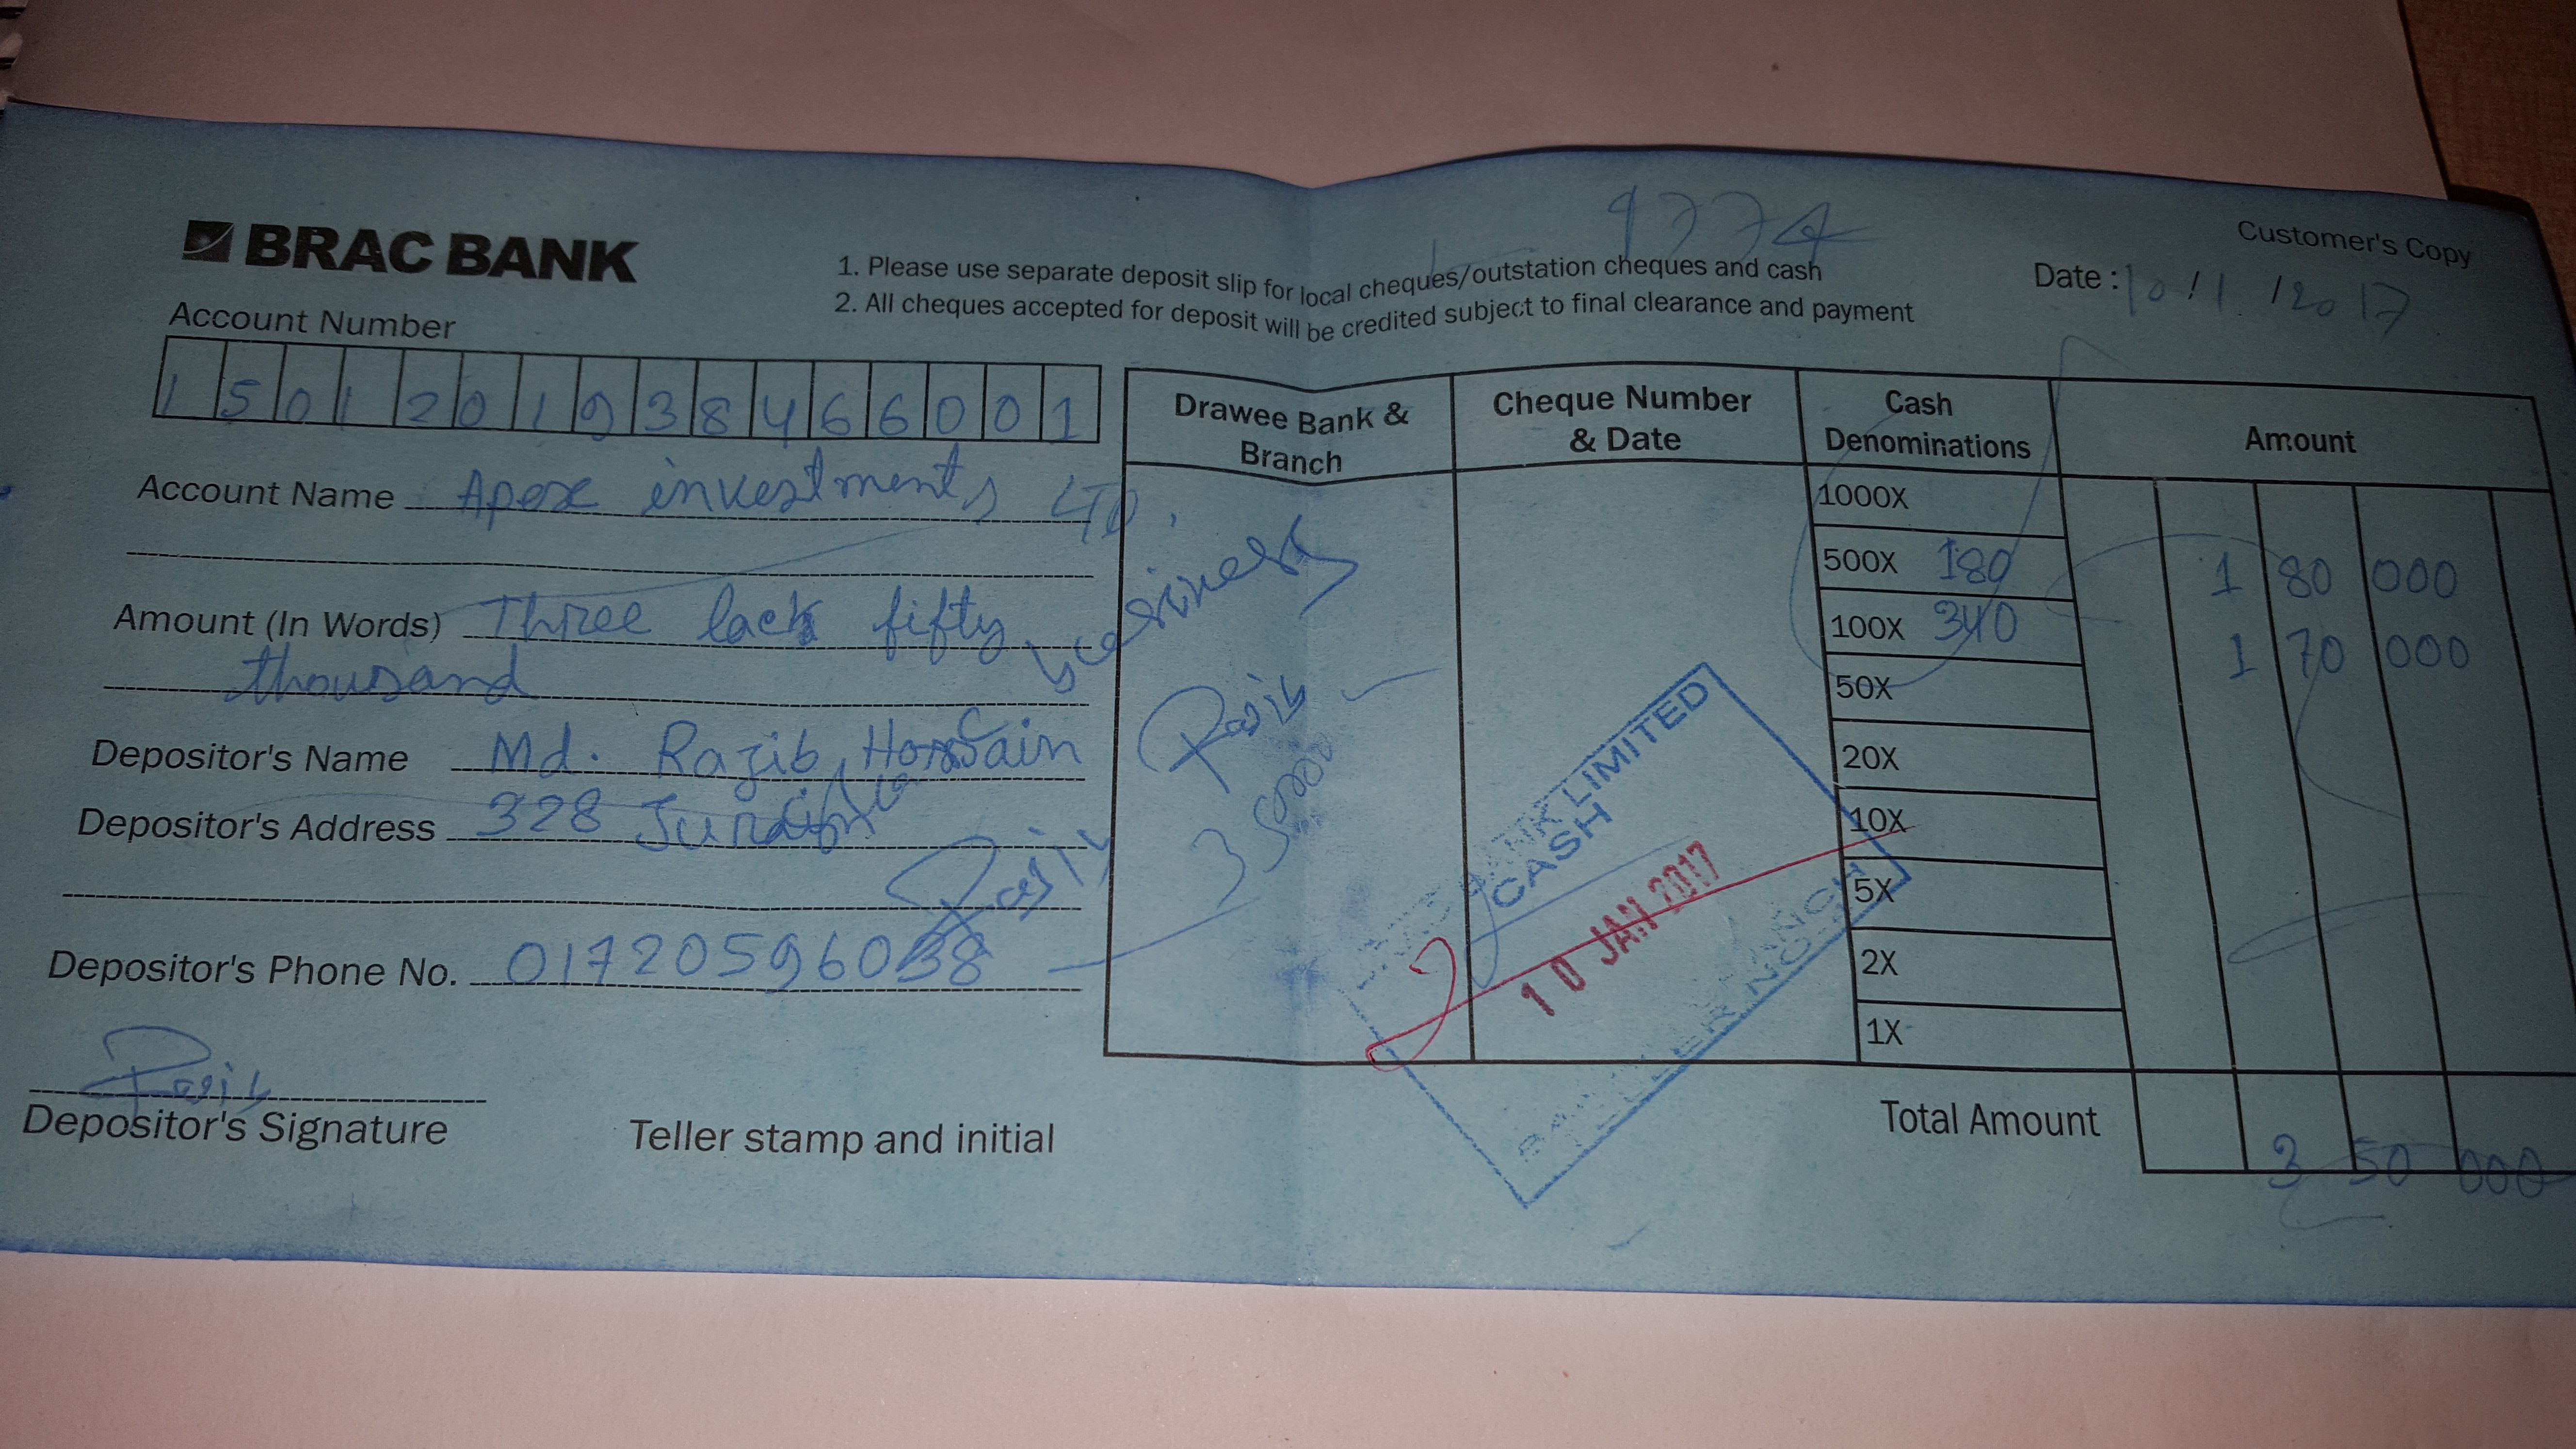 9774
Customer's Copy
BRAC BANK
1. Please use separate deposit slip for local cheques/outstation cheques and cash
2. All cheques accepted for deposit will be credited subject to final clearance and payment
Date : 10/1/2017
Account Number
1501201938466001
Account Name Apex investments LTD.
Amount (In Words) Three lack fifty
thousand
Depositor's Name Md. Razib Hossain
Depositor's Address 328 Jurain
Depositor's Phone No.
Razib
Depositor's Signature
Teller stamp and initial
Drawee Bank & Branch
Cheque Number & Date
Cash Denominations
Amount
business
Razib
350000
1000X
500X 180 1 80 000
100X 340 1 70 000
50X
20X
10X
5X
2X
1X
Total Amount 3 50 000
BANK LIMITED
CASH
10 JAN 2017